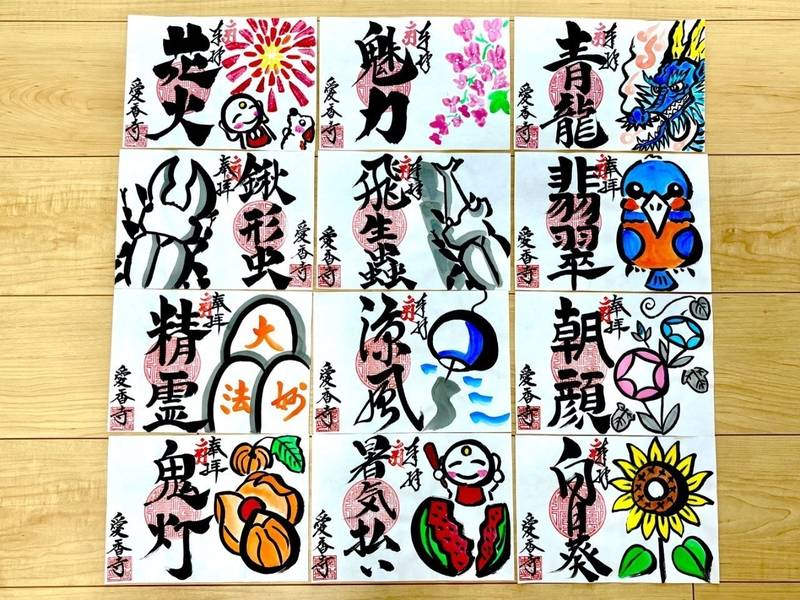 奉拝
花火
愛香寺
奉拝
魅力
愛香寺
奉拝
青龍
愛香寺
奉拝
鍬形虫
愛香寺
奉拝
飛生蟲
愛香寺
奉拝
翡翠
愛香寺
奉拝
精霊
愛香寺
大
法
妙
奉拝
涼風
愛香寺
奉拝
朝顔
愛香寺
奉拝
鬼灯
愛香寺
奉拝
暑気払い
愛香寺
奉拝
向日葵
愛香寺